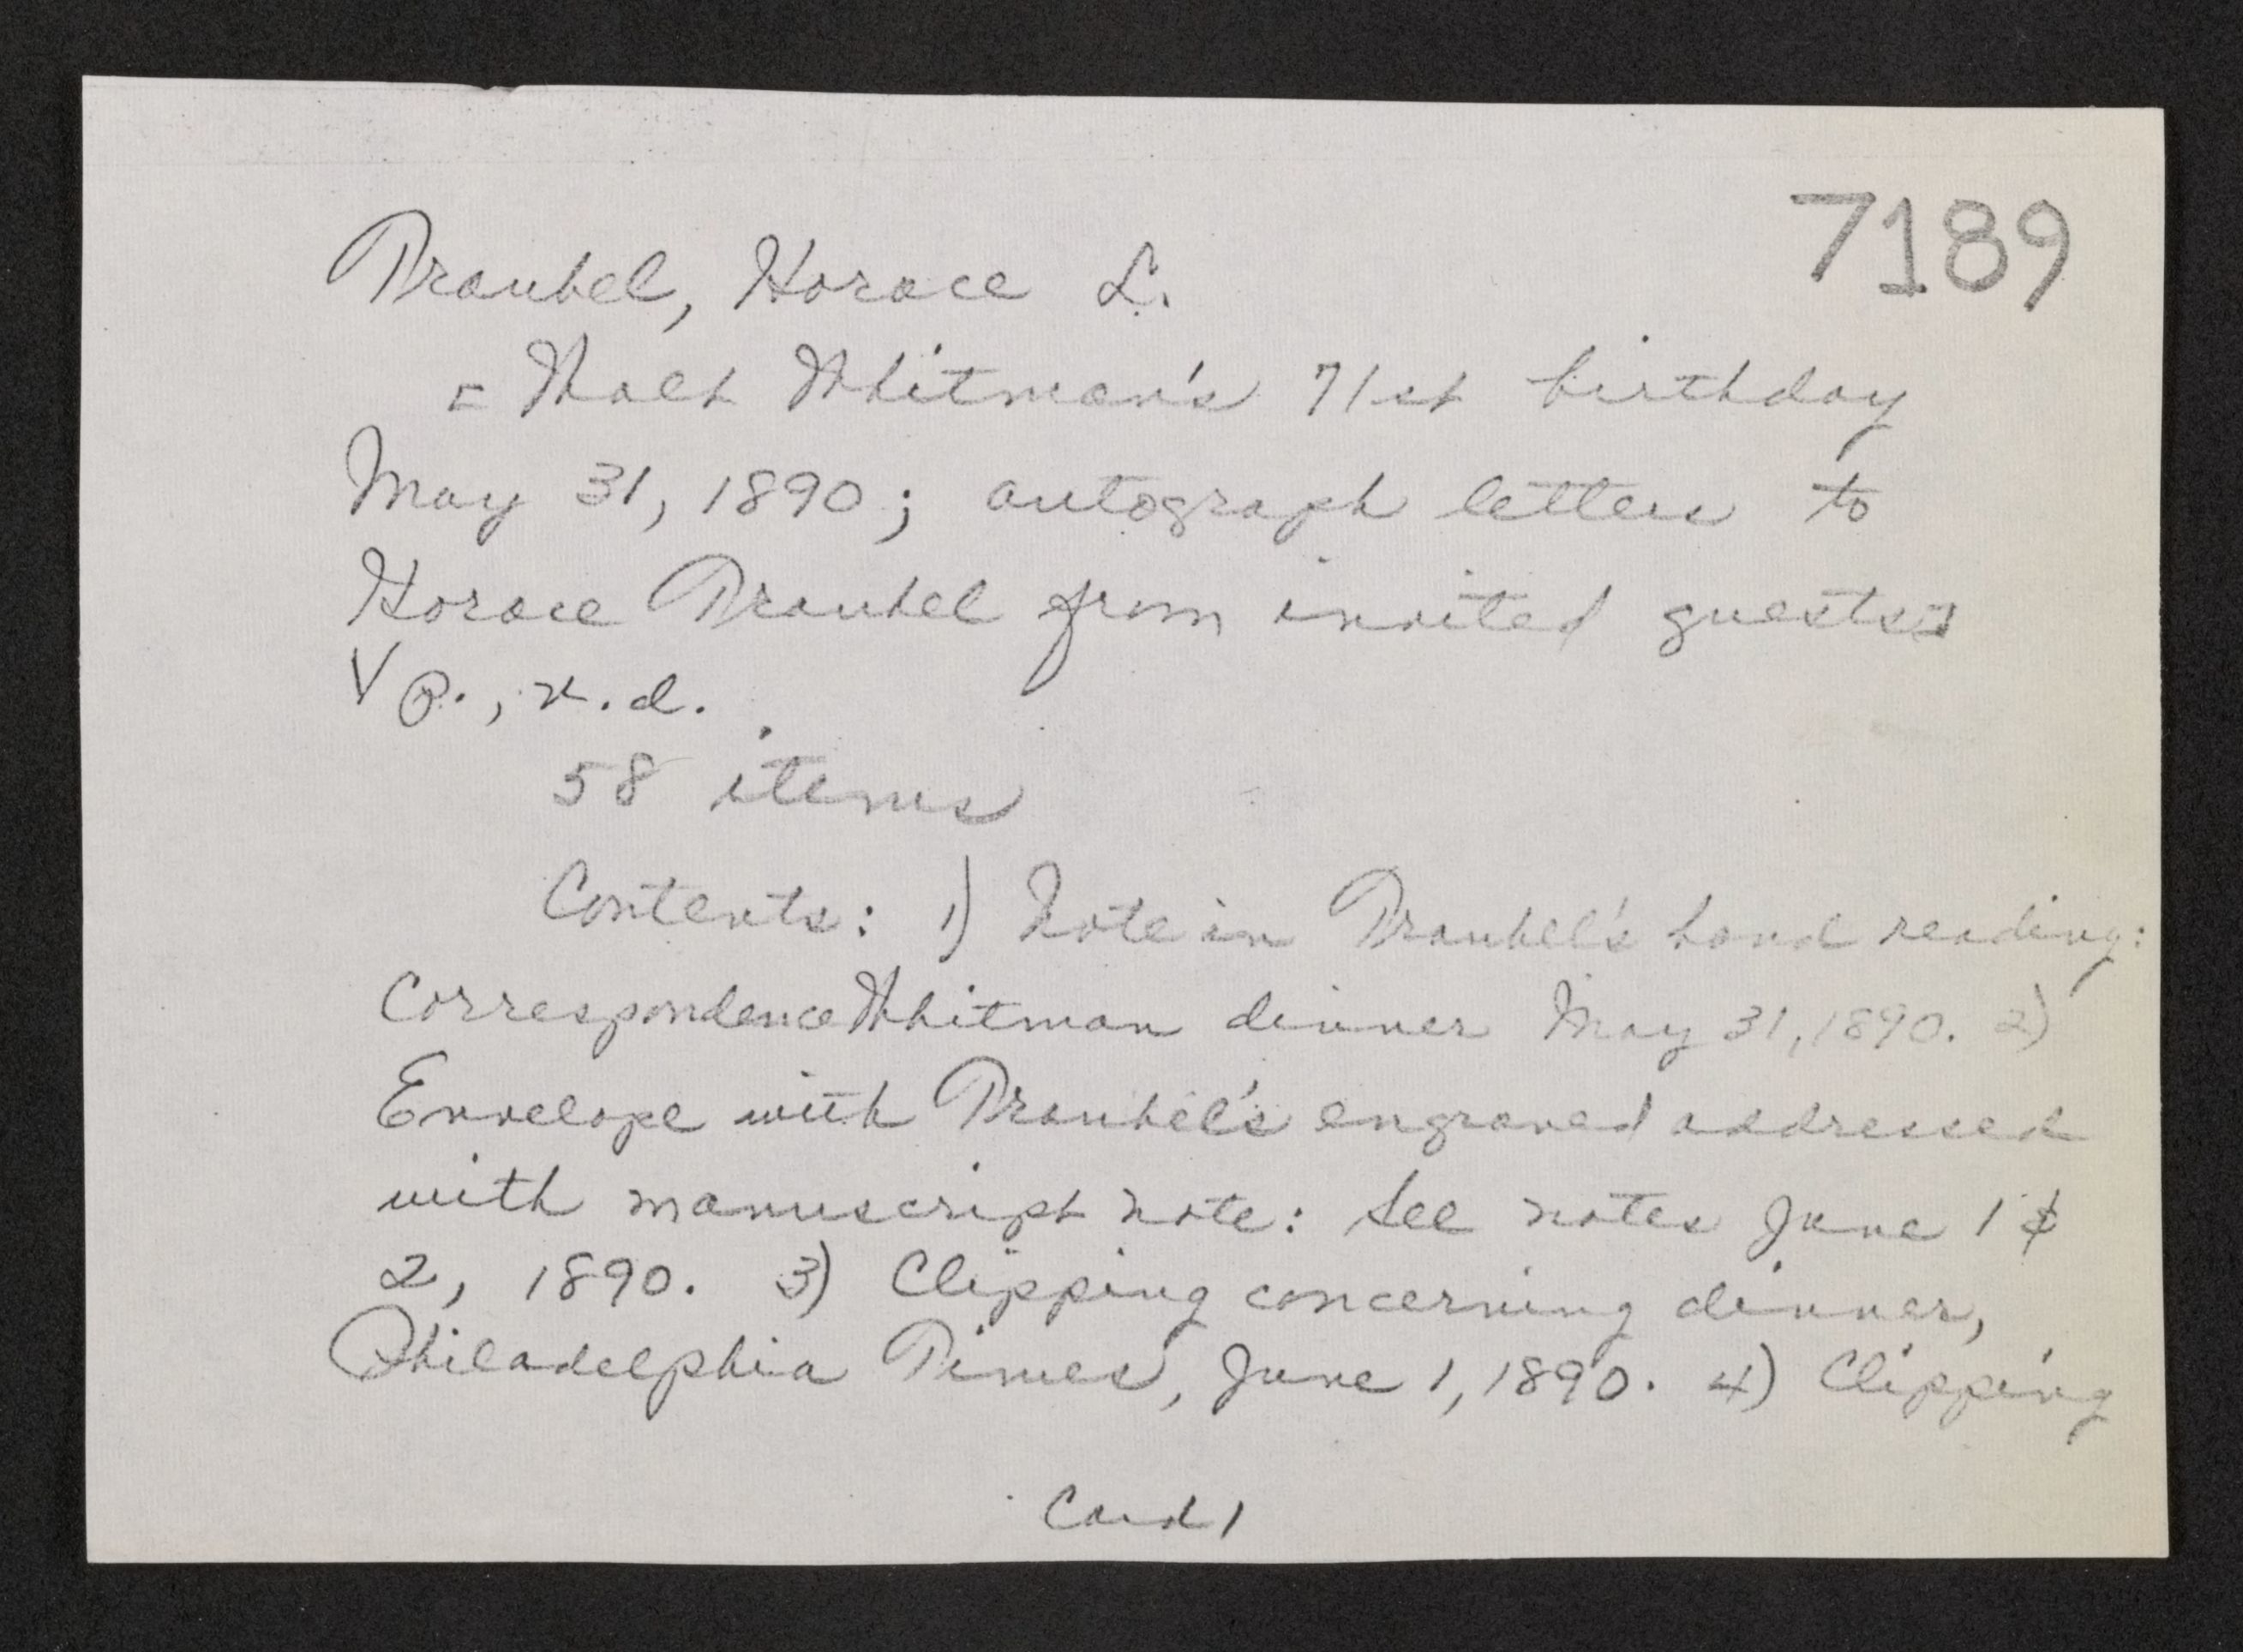 7189
Traubel, Horace L.
[Walt Whitman's 71st birthday
May 31, 1890; autograph letters to
Horace Traubel from invited guests]
V p., v.d.
58 items
Contents: 1) Note in Traubel's hand reading:
Correspondence Whitman dinner May 31, 1890. 2)
Envelope with Traubel's engraved addressed
with manuscript note: See notes June 1 &
2, 1890. 3) Clipping concerning dinner,
Philadelphia Times, June 1, 1890. 4) Clipping
Card 1